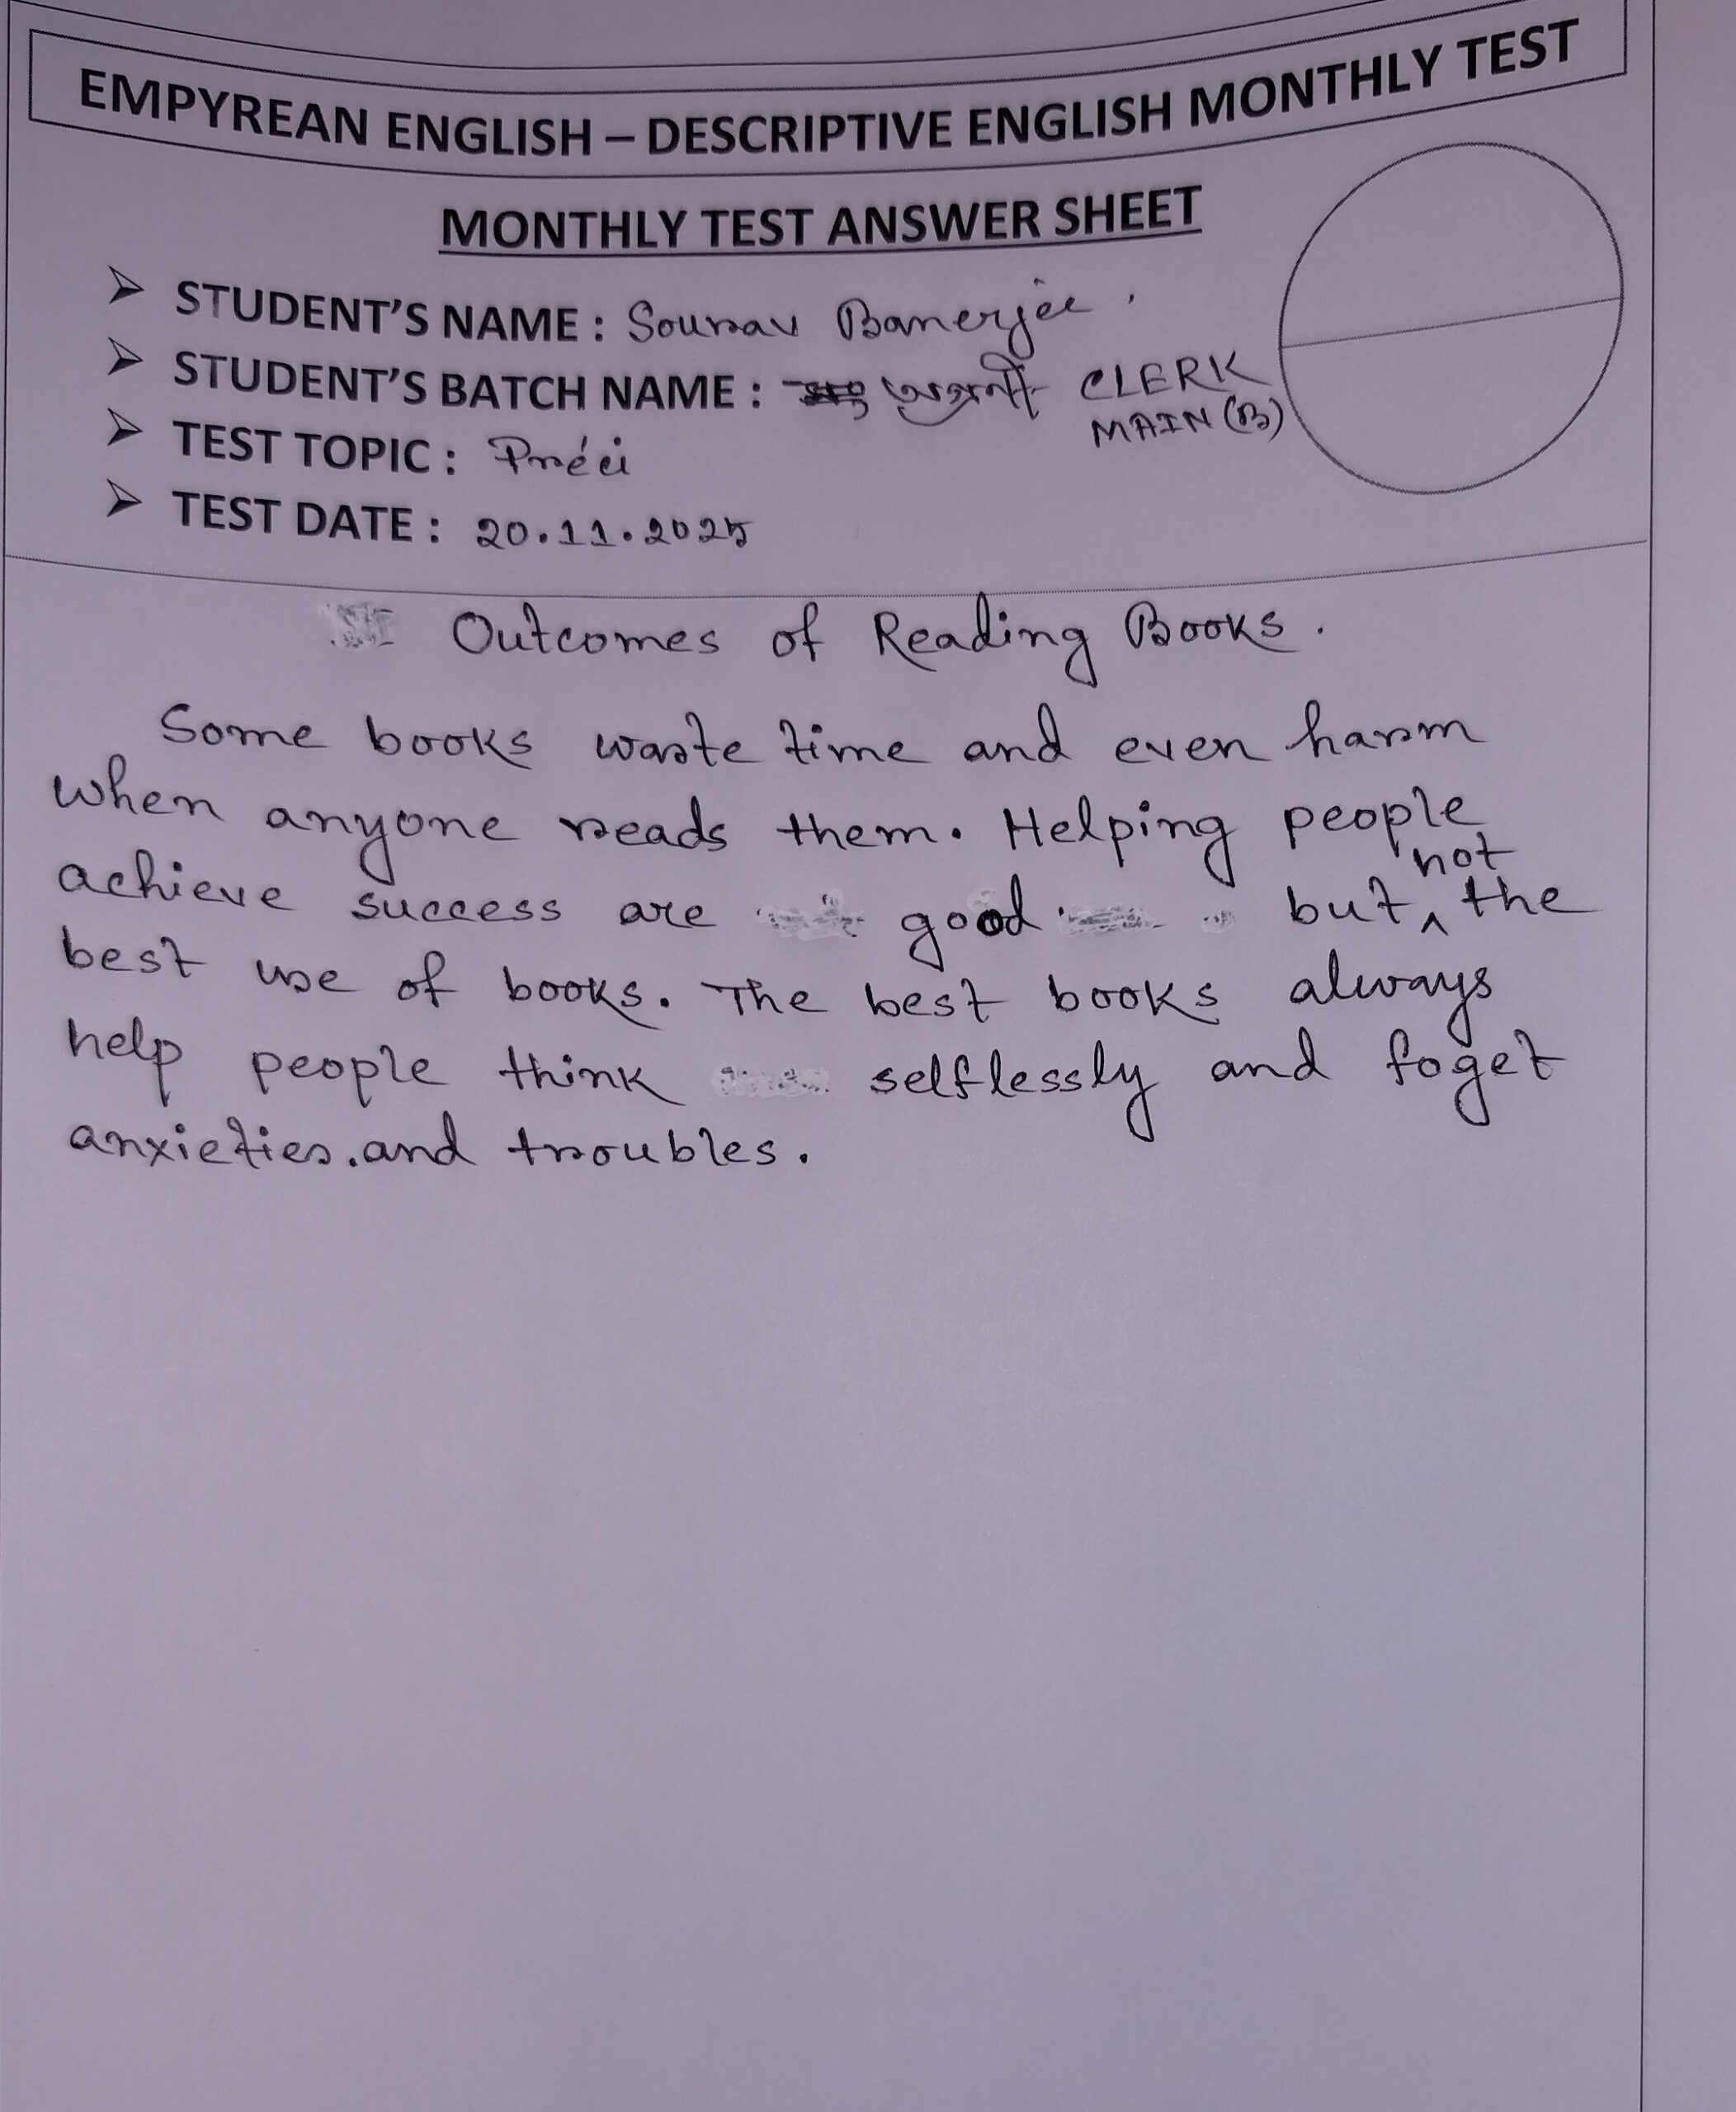 EMPYREAN ENGLISH – DESCRIPTIVE ENGLISH MONTHLY TEST
MONTHLY TEST ANSWER SHEET
➢ STUDENT'S NAME : Sourav Banerjee.
➢ STUDENT'S BATCH NAME : অগ্রণী CLERK
MAIN (B)
➢ TEST TOPIC : Préci
➢ TEST DATE : 20.11.2025
Outcomes of Reading Books.
Some books waste time and even harm
when anyone reads them. Helping people
not
achieve success are good but ^ the
best use of books. The best books always
help people think selflessly and foget
anxieties.and troubles.